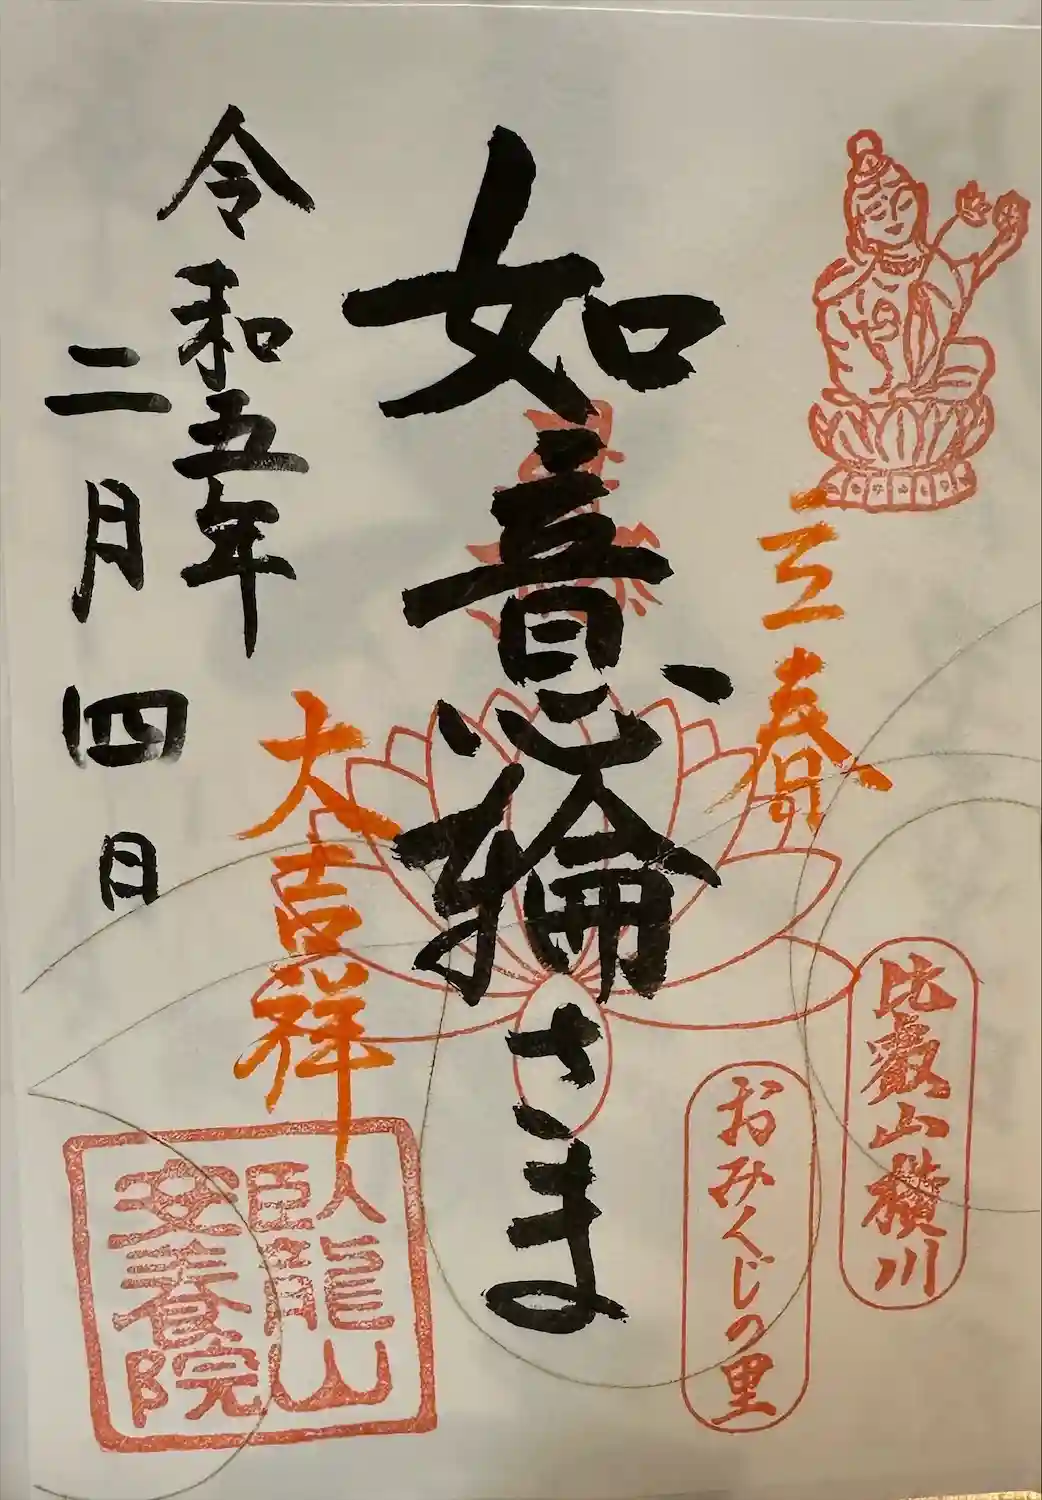 比叡山横川
おみくじの里
立春
如意輪さま
大吉祥
令和五年
二月四日
臥龍山
安養院